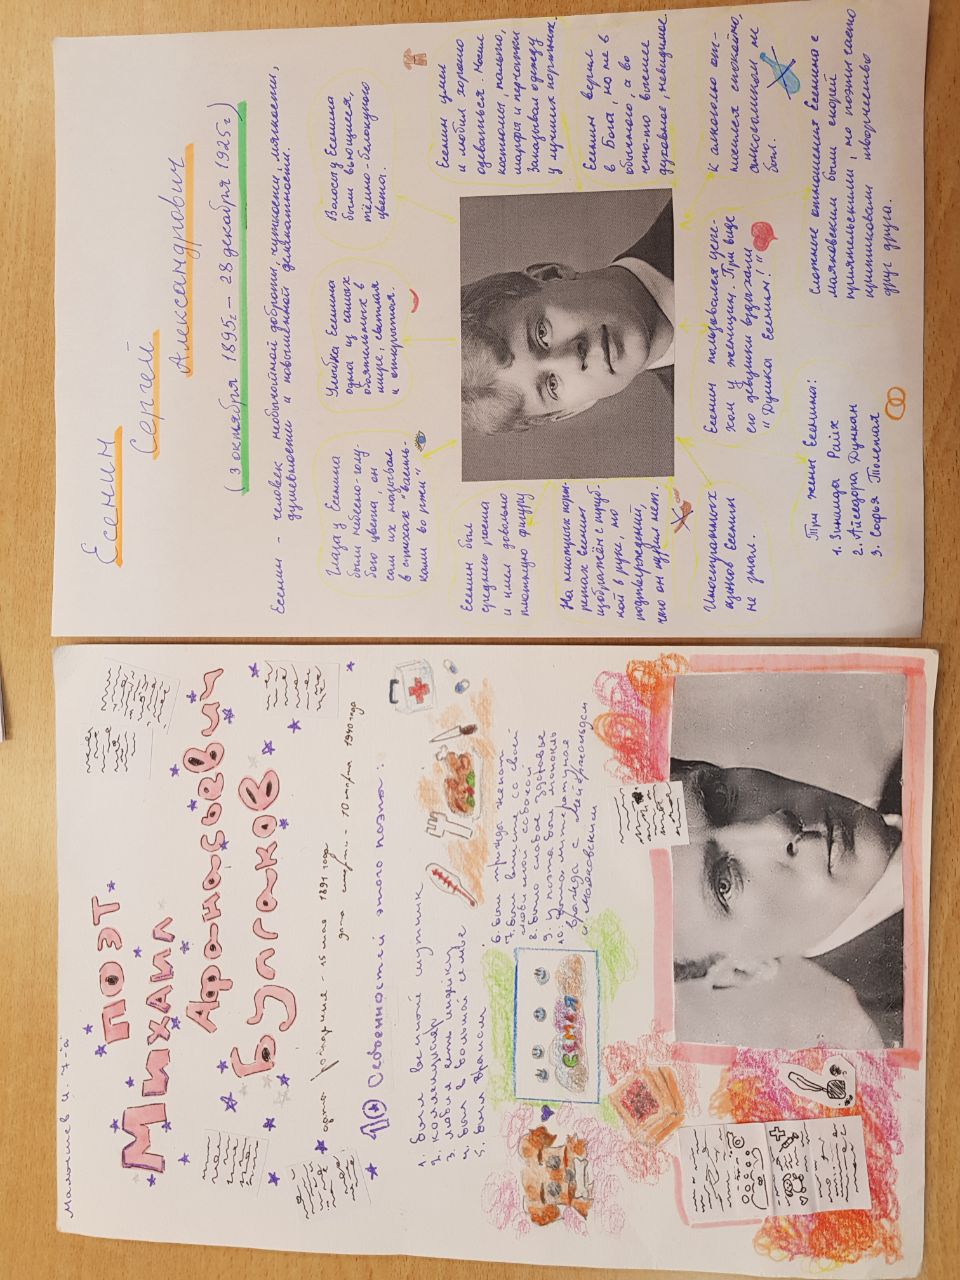 Есенин
Сергей
Александрович
(3 октября 1895г – 28 декабря 1925г)
Есенин – человек необыкновенной доброты, чуткости, мягкости,
душевности и повышенной деликатности.
Глаза у Есенина
были небесно-голу-
бого цвета, он
сам их называл
в стихах "василь-
ками во ржи"
Улыбка Есенина
одна из самых
обаятельных в
мире, светлая
и открытая.
Волосы у Есенина
были вьющиеся,
тёмно-белокурого
цвета.
Есенин был
среднего роста
и имел довольно
плотную фигуру
Есенин умел
и любил хорошо
одеваться. Носил
костюмы, пальто,
шарфы и перчатки
Заказывал одежду
у лучших портных.
На многих порт-
ретах Есенин
изображён с труб-
кой в руке, но
подтверждений,
что он курил нет.
Есенин верил
в Бога, но не в
обычного, а во
что-то высшее
духовное, невидимое.
Иностранных
языков Есенин
не знал.
Есенин пользовался успе-
хом у женщин. При виде
его девушки вздыхали
"Душка Есенин!"
К алкоголю от-
носился спокойно,
алкоголиком не
был.
Три жены Есенина:
1. Зинаида Райх
2. Айседора Дункан
3. Софья Толстая
Сложные отношения Есенина с
Маяковским были скорей
приятельскими, но поэты часто
критиковали творчество
друг друга.
7-а
поэт
Михаил
Афонасьевич
Булгаков
дата рождения - 15 мая 1891 года
дата смерти - 10 марта 1940 года
10 Особенностей этого поэта:
1. был весёлый шутник
2. коллекционер
3. любил есть индейку
4. был в большой семье
5. был врачом.
6. Был трижды женат
7. Был вместе со своей
любимой собакой
8. Было слабое здоровье
9. У поэта был монокль
10. Была литературная
вражда с Мейерхольдом
и Маяковским
семья